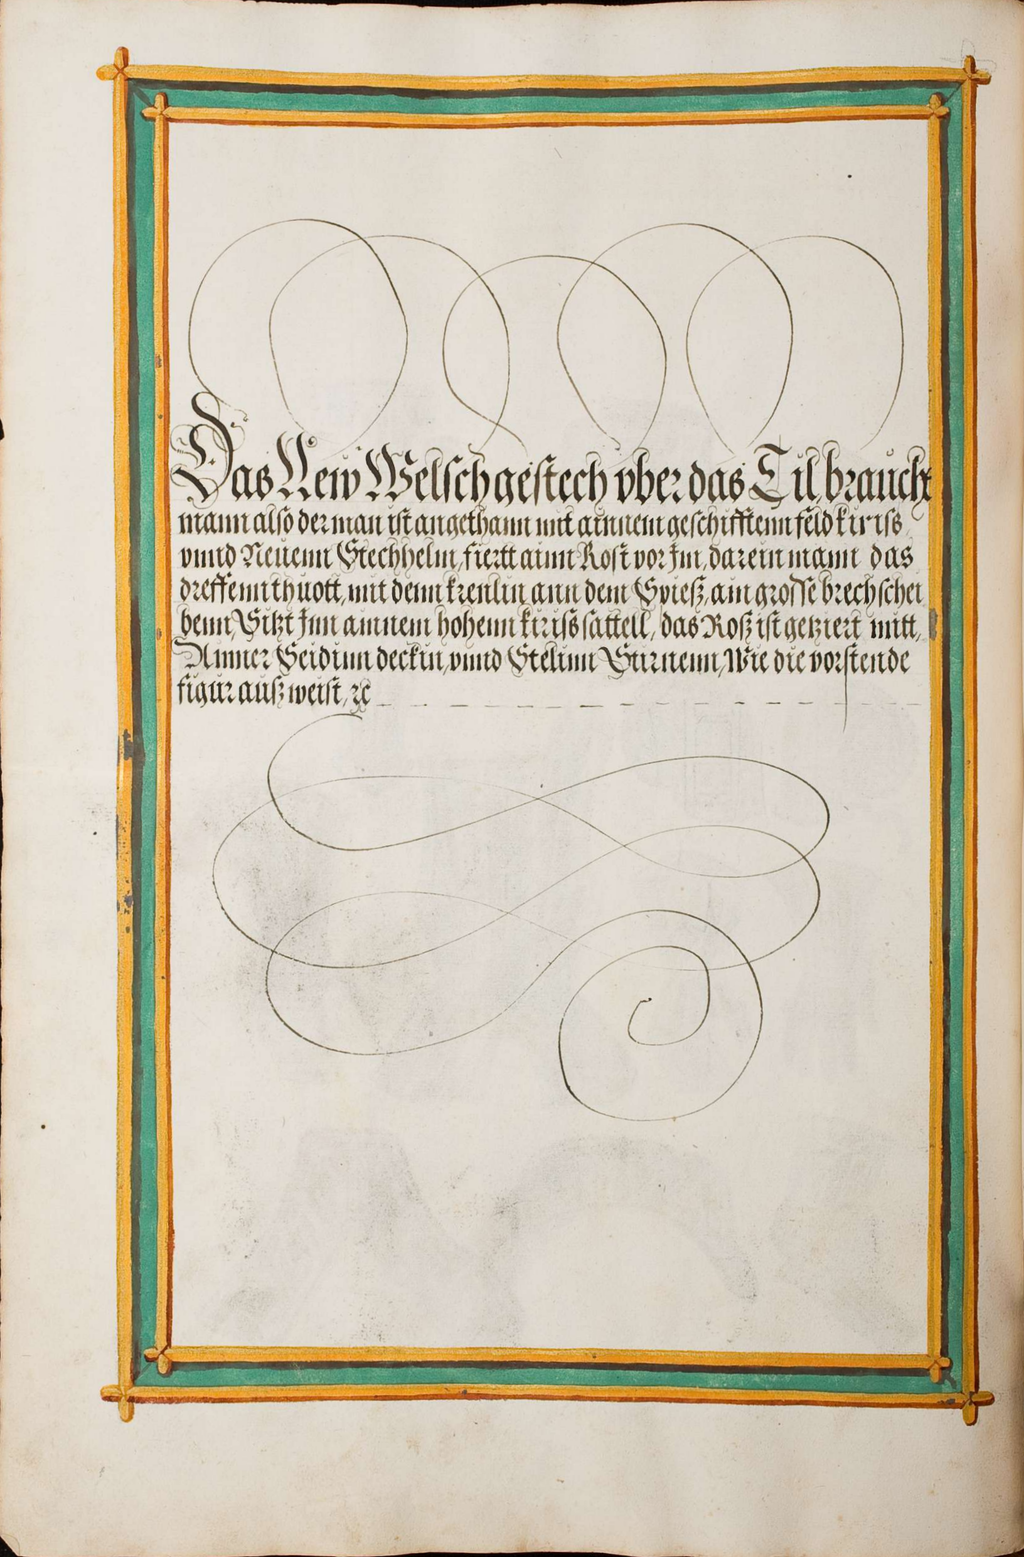 Das New Welsch gestech vber das Til, braucht
mann also der man ist angethann mit ainnem geschifftenn feld kiriss
vnnd Neuenn Stechhelm, fiertt ainn Rost vor Im, darein mann das
dreffenn thuott, mit denn krenlin ann dem Spieß, ain grosse brechschei
benn, Sitzt Inn ainnem hohenn kiriss sattell, das Roß ist geziert mitt,
Ainner Seidinn deckin, vnnd Stelinn Stirnenn, Wie die vorstende
figur auß weist, ꝛc